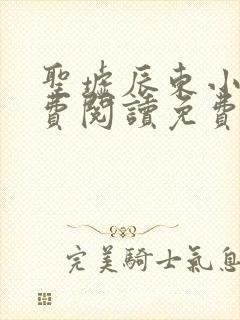 聖墟辰東小
費閱讀免費
完美騎士氣息